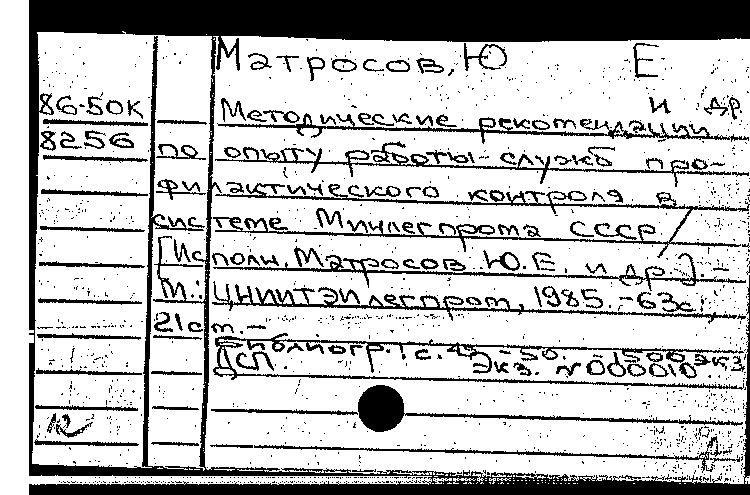 Матросов, Ю Е
и др
86-50К Методические рекомендации
8256 по опыту работы служб про-
филактического контроля в
системе Минлегпрома СССР /
[Исполн. Матросов Ю.Е. и др.]. -
М.: ЦНИИТЭИлегпром, 1985. - 63с.;
21см. -
Библиогр.: с. 49 - 50. - 1500 экз
ДСП. Экз. №000010.
12